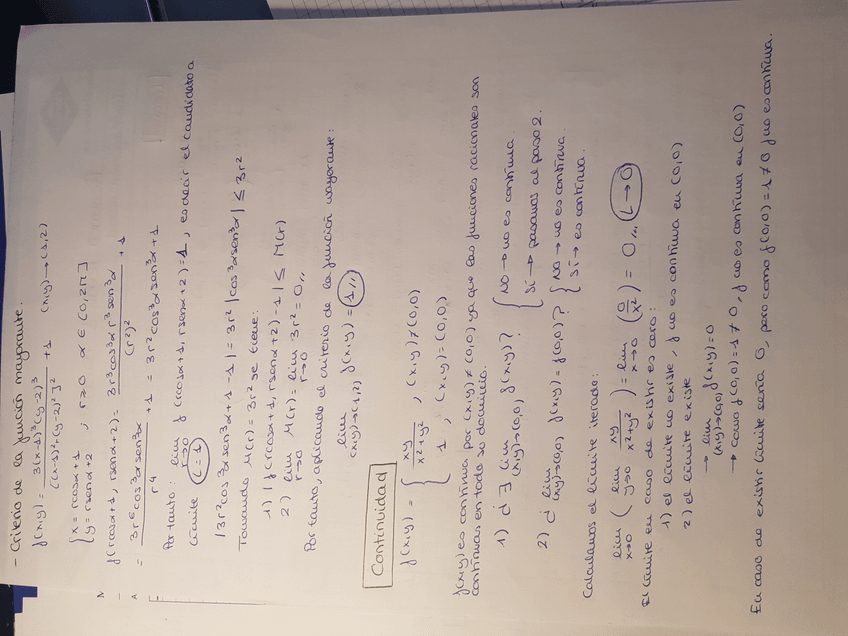 - Criterio de la función mayorante.
f(x,y) = 3(x-1)³(y-2)³ / [(x-1)²+(y-2)²]² + 1 (x,y)→(1,2)
{ x = rcosα+1
{ y = rsenα+2 ; r>0 α ∈ [0,2π]
f(rcosα+1, rsenα+2) = 3r³cos³α r³sen³α / (r²)² + 1
= 3r⁶cos³αsen³α / r⁴ + 1 = 3r²cos³αsen³α+1
Por tanto: lim r→0 f(rcosα+1, rsenα+2) = 1, es decir el candidato a
límite L=1
|3r²cos³αsen³α+1-1| = 3r²|cos³αsen³α| ≤ 3r²
Tomando M(r)=3r² se tiene:
1) |f(rcosα+1, rsenα+2)-1| ≤ M(r)
2) lim r→0 M(r) = lim r→0 3r² = 0,,
Por tanto, aplicando el criterio de la función mayorante:
lim (x,y)→(1,2) f(x,y) = 1,,
Continuidad
f(x,y) = { xy / x²+y² , (x,y)≠(0,0)
1 , (x,y)=(0,0)
f(x,y) es continua por (x,y)≠(0,0) ya que las funciones racionales son
continuas en todo su dominio.
1) ¿ ∃ lim (x,y)→(0,0) f(x,y)? { No → no es continua.
Sí → pasamos al paso 2.
2) ¿ lim (x,y)→(0,0) f(x,y) = f(0,0)? { No → no es continua.
Sí → es continua.
Calculamos el límite iterado:
lim x→0 ( lim y→0 xy / x²+y² ) = lim x→0 (0/x²) = 0,, L→0
El límite en caso de existir es cero:
1) el límite no existe, f no es continua en (0,0)
2) el límite existe
→ lim (x,y)→(0,0) f(x,y)=0
→ Como f(0,0)=1≠0, f no es continua en (0,0)
En caso de existir límite sería 0, pero como f(0,0)=1≠0 f no es continua.